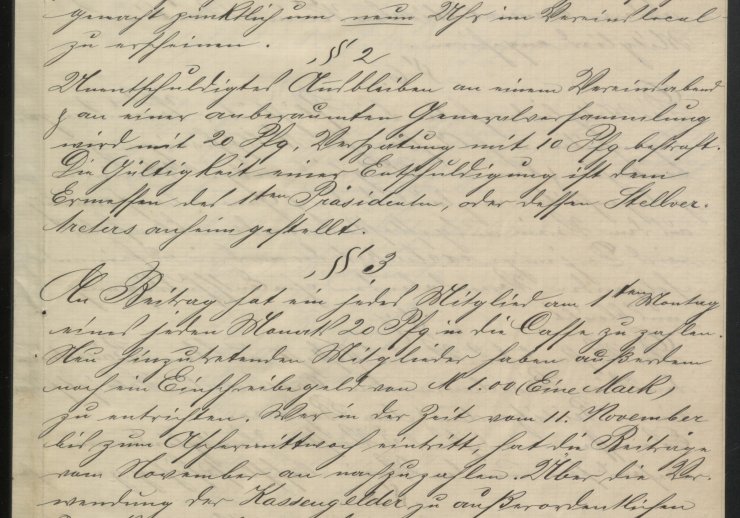 gemacht pünktlich um neun Uhr im Vereinslocal
zu erscheinen.
§§ 2
Unentschuldigtes Ausbleiben an einem Vereinsabend
an einer anberaumten Generalversammlung
wird mit 20 Pfg, Verspätung mit 10 Pfg bestraft.
Die Gültigkeit einer Entschuldigung ist dem
Ermessen des 1ten Präsidenten, oder dessen Stellver-
treters anheimgestellt.
§§ 3
An Beitrag hat ein jedes Mitglied am 1ten Montag
eines jeden Monats 20 Pfg in die Casse zu zahlen.
Neu hinzutretenden Mitglieder haben außerdem
noch ein Einschreibegeld von M 1.00 (Eine Mark)
zu entrichten. Wer in der Zeit vom 11. November
bis zum Aschermittwoch eintritt, hat die Beiträge
vom November an nachzuzahlen. Über die Ver-
wendung der Kassengelder zu außerordentlichen